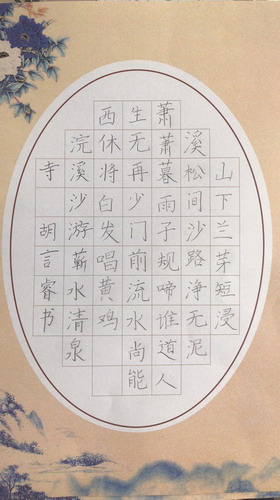 山下兰芽短浸
溪松间沙路净无泥
萧萧暮雨子规啼谁道人
生无再少门前流水尚能
西休将白发唱黄鸡
浣溪沙游蕲水清泉
寺 胡言睿书